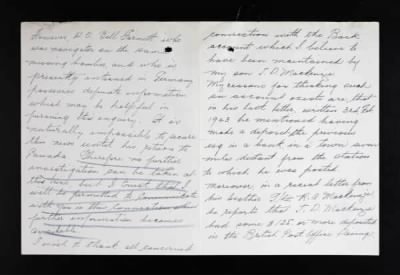 However D.O. Bill Garnett who
was navigator on the same
missing bomber, and who is
presently interned in Germany
possesses definite information
which may be helpful in
pursuing this enquiry. It is
naturally impossible to secure
this news until his return to
Canada. Therefore no further
investigation can be taken at
this time but I trust that I
will be permitted to communicate
with you in this connection when
further information becomes
available.
I wish to thank all concerned
connection with the Bank
account which I believe to
have been maintained by
my son J.D. Mackenzie
My reasons for thinking such
an account exists are, that
in his last letter, written 3rd Feb
1943 he mentioned having
made a deposit the previous
in a bank, in a town some
miles distant from the station
to which he was posted.
Moreover, in a recent letter from
his brother R.A. Mackenzie
he reports that J.D. Mackenzie
had some $125 or more deposited
in the British Post Office Savings